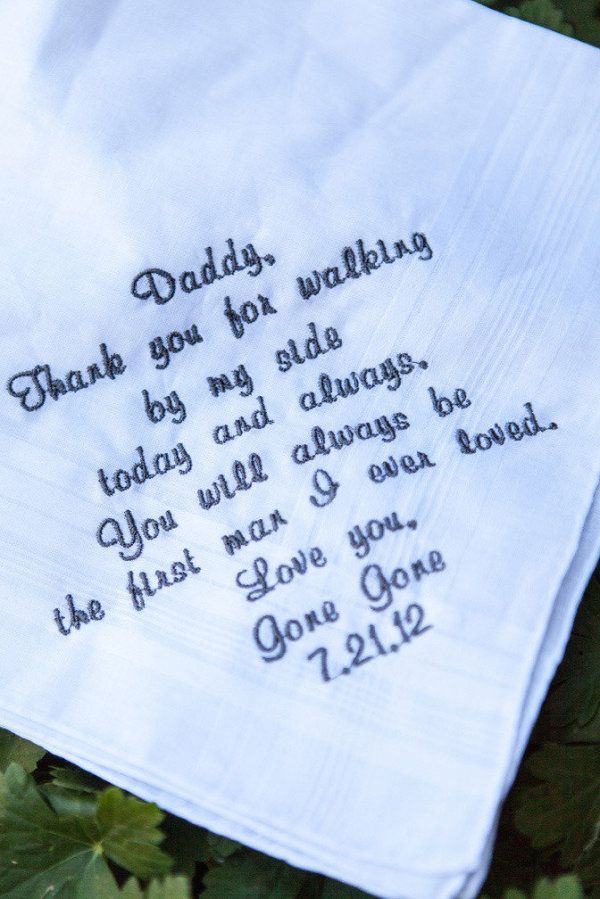 Daddy,
Thank you for walking
by my side
today and always.
You will always be
the first man I ever loved.
Love you,
Gone Gone
7.21.12